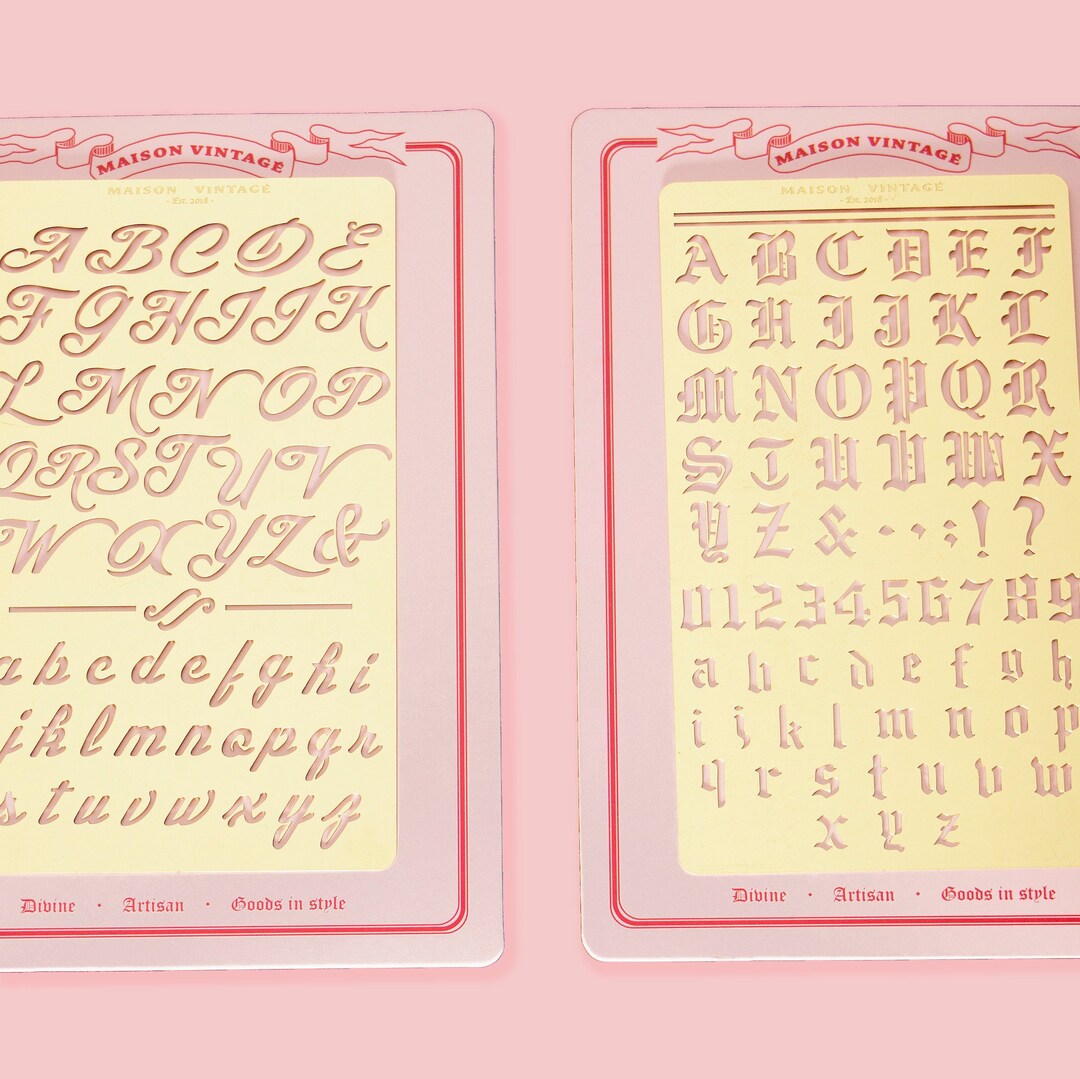 MAISON VINTAGÉ
MAISON VINTAGÉ
- Est. 2018 -
A B C D E
F G H I J K
L M N O P
Q R S T U V
W X Y Z &
a b c d e f g h i
j k l m n o p q r
s t u v w x y z
Divine · Artisan · Goods in style
MAISON VINTAGÉ
MAISON VINTAGÉ
- Est. 2018 -
A B C D E F
G H I J K L
M N O P Q R
S T U V W X
Y Z & . , ; ! ?
0 1 2 3 4 5 6 7 8 9
a b c d e f g h
i j k l m n o p
q r s t u v w
x y z
Divine · Artisan · Goods in style